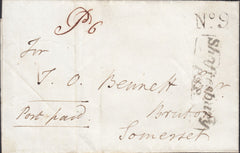 P 6
No. 9
Shaftesbury
For
T. O. Bennett
Bruton
Post paid
Somerset